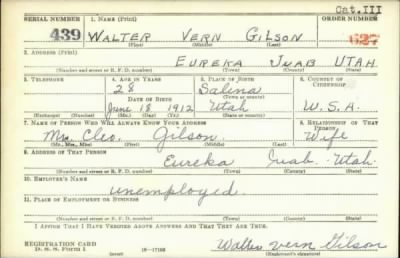 Cat. III
SERIAL NUMBER 1. NAME (Print) ORDER NUMBER
439 WALTER VERN GILSON 627
(First) (Middle) (Last)
2. ADDRESS (Print)
EUREKA JUAB UTAH
(Number and street or R. F. D. number) (Town) (County) (State)
3. TELEPHONE 4. AGE IN YEARS 5. PLACE OF BIRTH 6. COUNTRY OF CITIZENSHIP
28 Salina
DATE OF BIRTH (Town or county)
June 18 1912 Utah U.S.A.
(Exchange) (Number) (Mo.) (Day) (Yr.) (State or country)
7. NAME OF PERSON WHO WILL ALWAYS KNOW YOUR ADDRESS 8. RELATIONSHIP OF THAT PERSON
Mrs. Cleo. Gilson Wife
(Mr., Mrs., Miss) (First) (Middle) (Last)
9. ADDRESS OF THAT PERSON
Eureka Juab. Utah.
(Number and street or R. F. D. number) (Town) (County) (State)
10. EMPLOYER'S NAME
unemployed.
11. PLACE OF EMPLOYMENT OR BUSINESS
(Number and street or R. F. D. number) (Town) (County) (State)
I AFFIRM THAT I HAVE VERIFIED ABOVE ANSWERS AND THAT THEY ARE TRUE.
REGISTRATION CARD
D. S. S. FORM 1 (over) 16—17105 Walter Vern Gilson
(Registrant's signature)